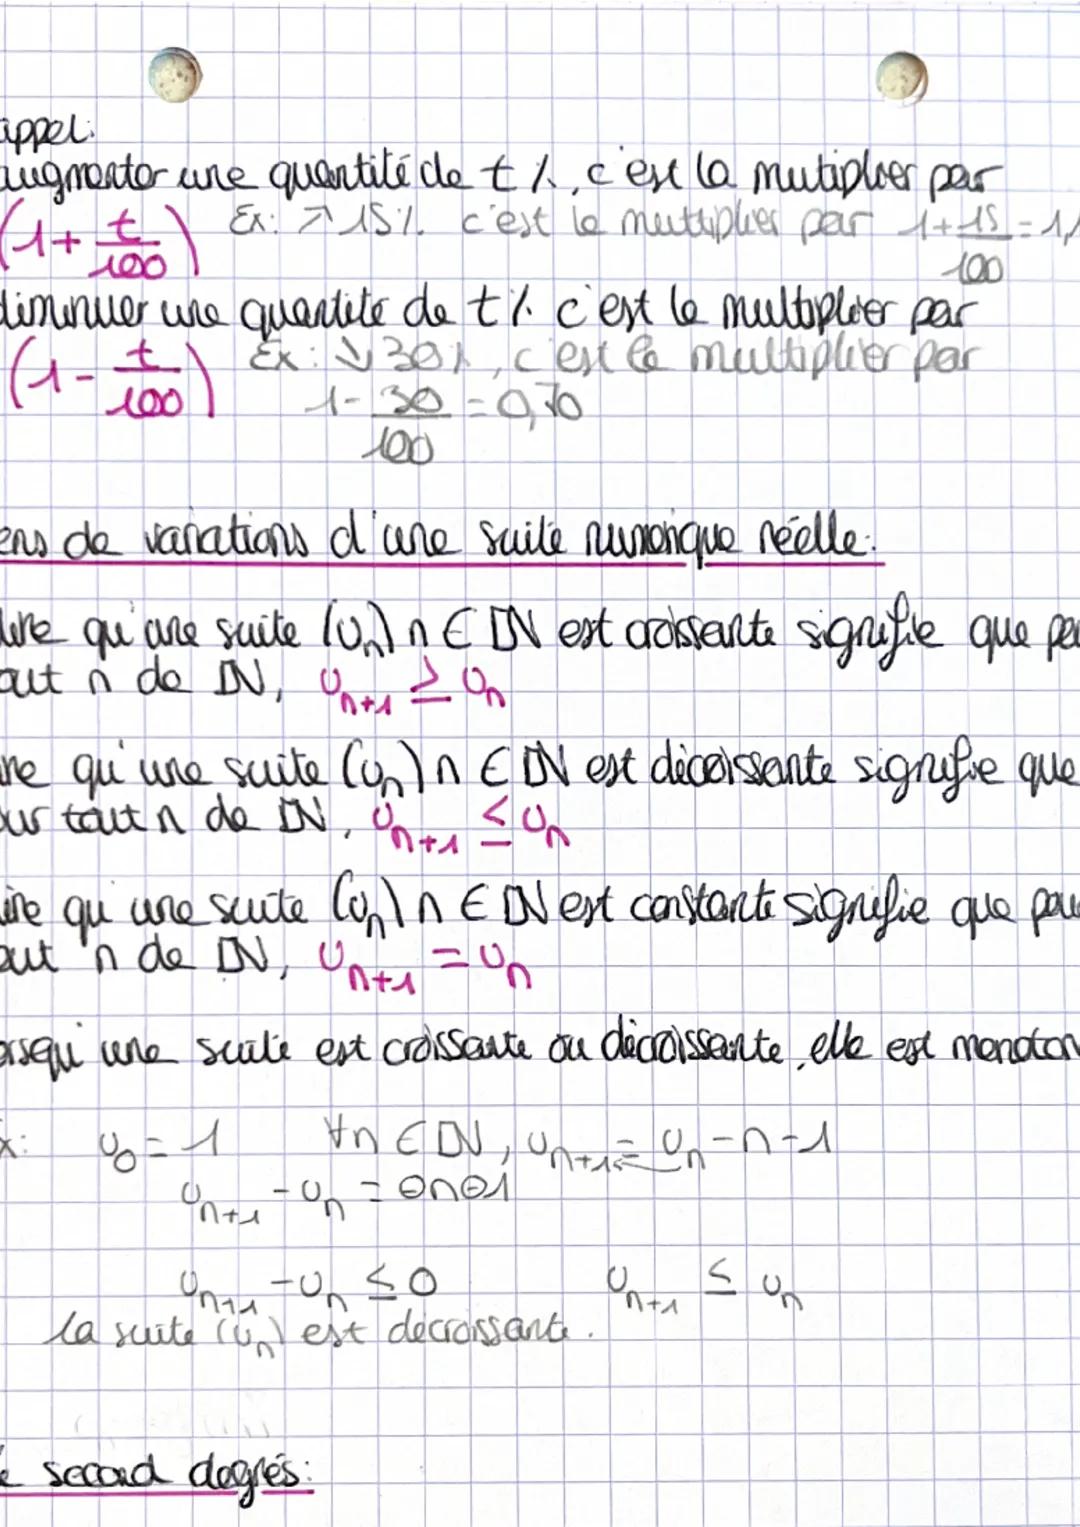 appel:
augmenter une quantité de t %, c'est la mutiplier par
(1+ t/100) Ex: ↗ 15% c'est le multiplier par 1+ 15/100 = 1,1
diminuer une quantité de t % c'est le multiplier par
(1- t/100) Ex: ↘ 30%, c'est le multiplier par
1- 30/100 = 0,70
ens de variations d'une suite numérique réelle:
dire qu'une suite (un) n ∈ IN est croissante signifie que po
out n de IN, un+1 ≥ un
ire qu'une suite (un) n ∈ IN est décroissante signifie que
our tout n de IN, un+1 ≤ un
ire qu'une suite (un) n ∈ IN est constante signifie que pou
out n de IN, un+1 = un
orsqu'une suite est croissante ou décroissante, elle est monoton
x: u0 = 1 ∀n ∈ IN, un+1 = un - n - 1
un+1 - un = ⊖n⊖1
un+1 - un ≤ 0 un+1 ≤ un
la suite (un) est décroissante.
e second degrés: